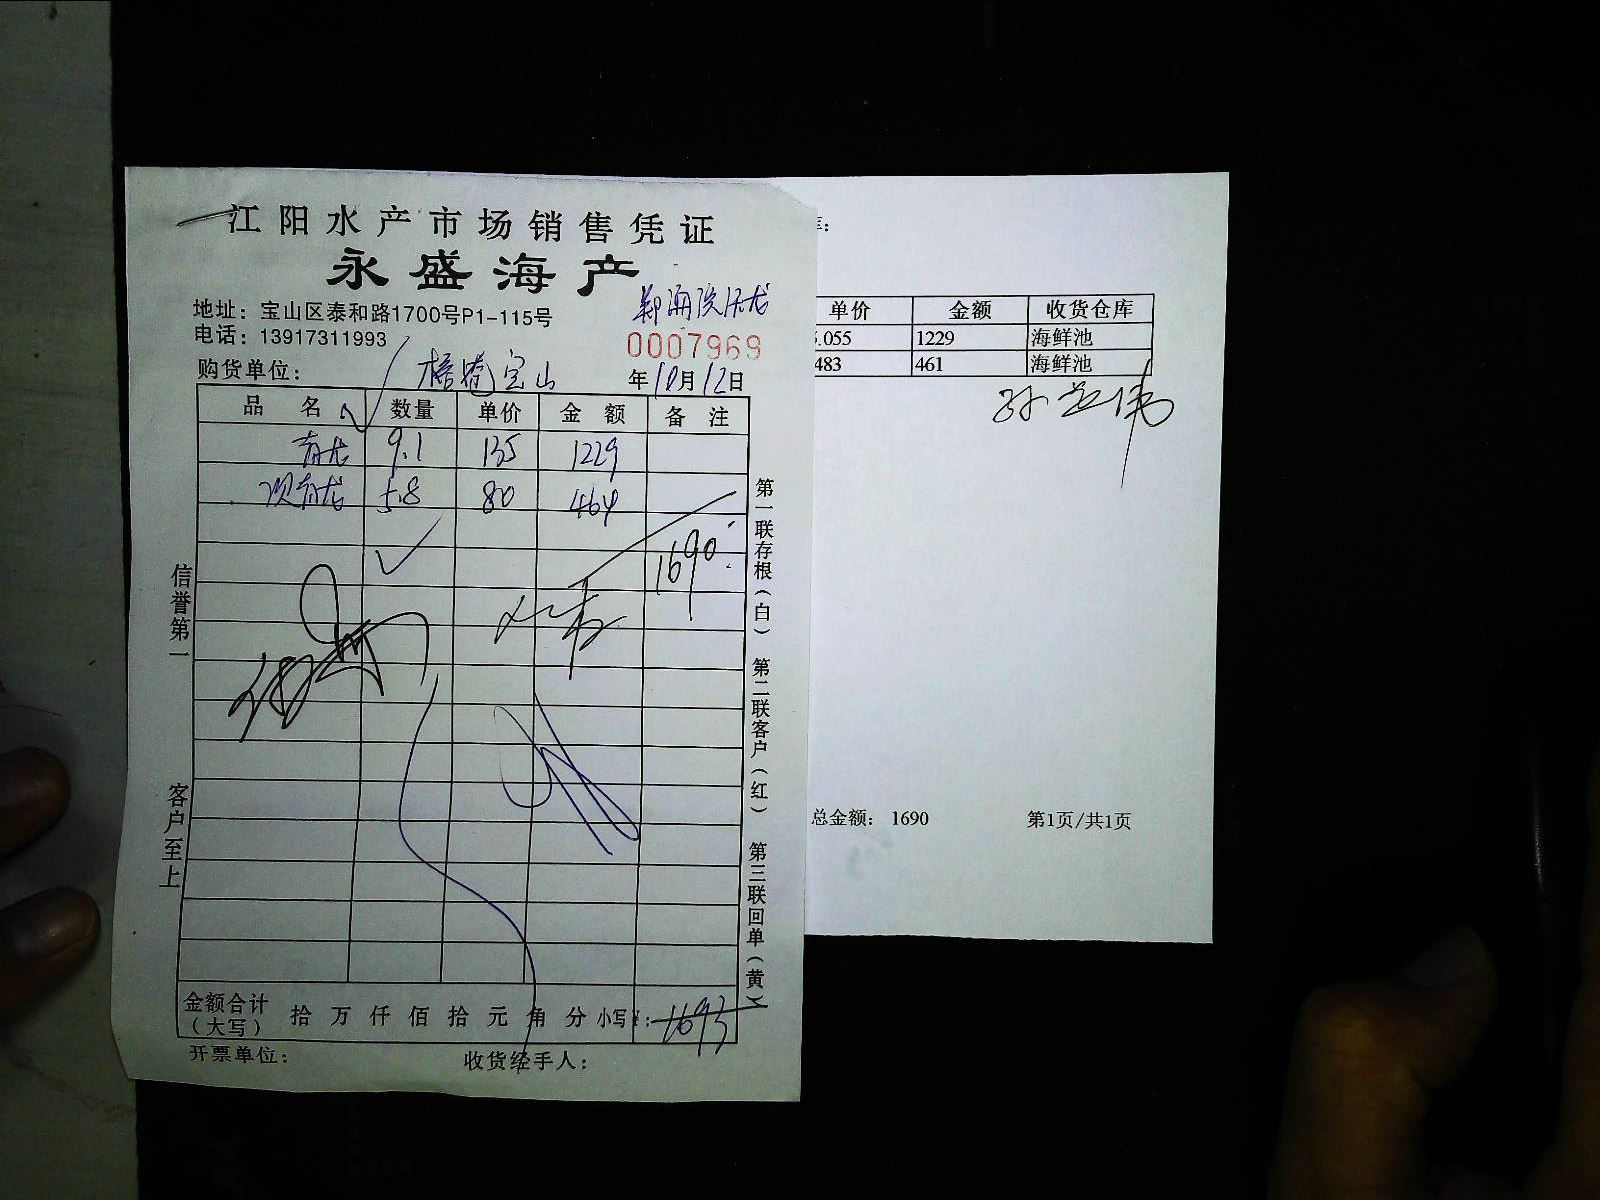 江阳水产市场销售凭证
永盛海产
地址：宝山区泰和路1700号P1-115号
电话：13917311993
0007969
购货单位： 宝山 年10月12日
品名 数量 单价 金额 备注
青龙 9.1 135 1229
青龙 5.8 80 464
1690
信誉第一
客户至上
第一联存根（白） 第二联客户（红） 第三联回单（黄）
金额合计（大写） 拾 万 仟 佰 拾 元 角 分 小写￥： 1693
开票单位： 收货经手人：
单价 金额 收货仓库
.055 1229 海鲜池
483 461 海鲜池
总金额： 1690 第1页/共1页